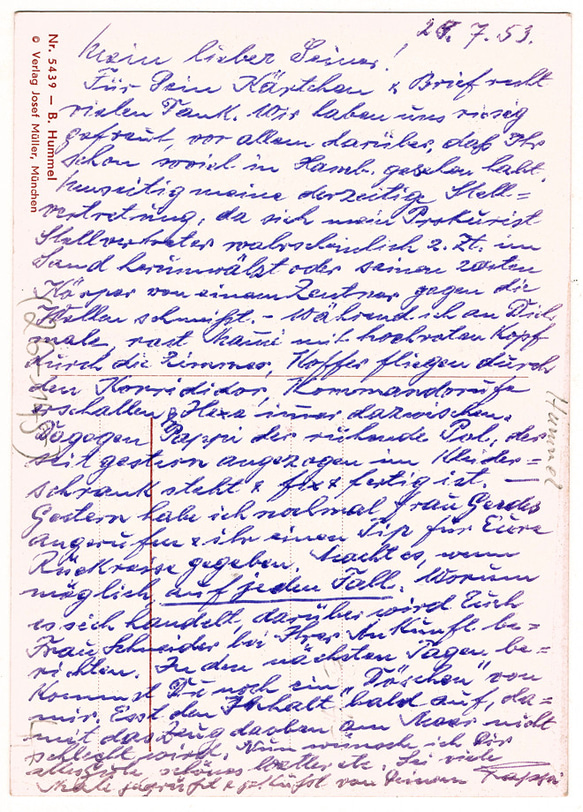 Nr. 5439 – B. Hummel
© Verlag Josef Müller, München
7. 53.
Mein lieber Heiner!
Für Dein Kärtchen & Brief recht
vielen Dank. Wir haben uns riesig
gefreut, vor allem darüber, daß Ihr
schon soviel in Hamb. gesehen habt.
meine derzeitige Stell=
vertretung, da sich mein Prokurist
Stellvertreter wahrscheinlich z. Zt. im
Sand herumwälzt oder seinen zarten
Körper von einem Zentner gegen die
Wellen schmeißt. – Während ich an Dich
male, rast Mami mit hochroten Kopf
durch die Zimmer, Koffer fliegen durch
den Korridor, Kommandorufe
erschallen & Hexe immer dazwischen.
Dagegen Pappi der ruhende Pol, der
seit gestern angezogen im Kleider=
schrank steht & fix & fertig ist. –
Gestern habe ich nochmal Frau Gerdes
angerufen & ihr einen Tip für Eure
Rückreise gegeben. Macht es, wenn
möglich auf jeden Fall. Worum
es sich handelt, darüber wird Euch
Frau Schneider bei Ihrer Ankunft be=
richten. In den nächsten Tagen be=
kommst Du noch ein „Döschen" von
mir. Esst den Inhalt bald auf, da=
mit das Zeug da oben am Meer nicht
schlecht wird. Nun wünsche ich Dir
alles Gute, schönes Wetter etc. Sei viele
Male gegrüßt & geküßt von Deinem Pappi
Hummel